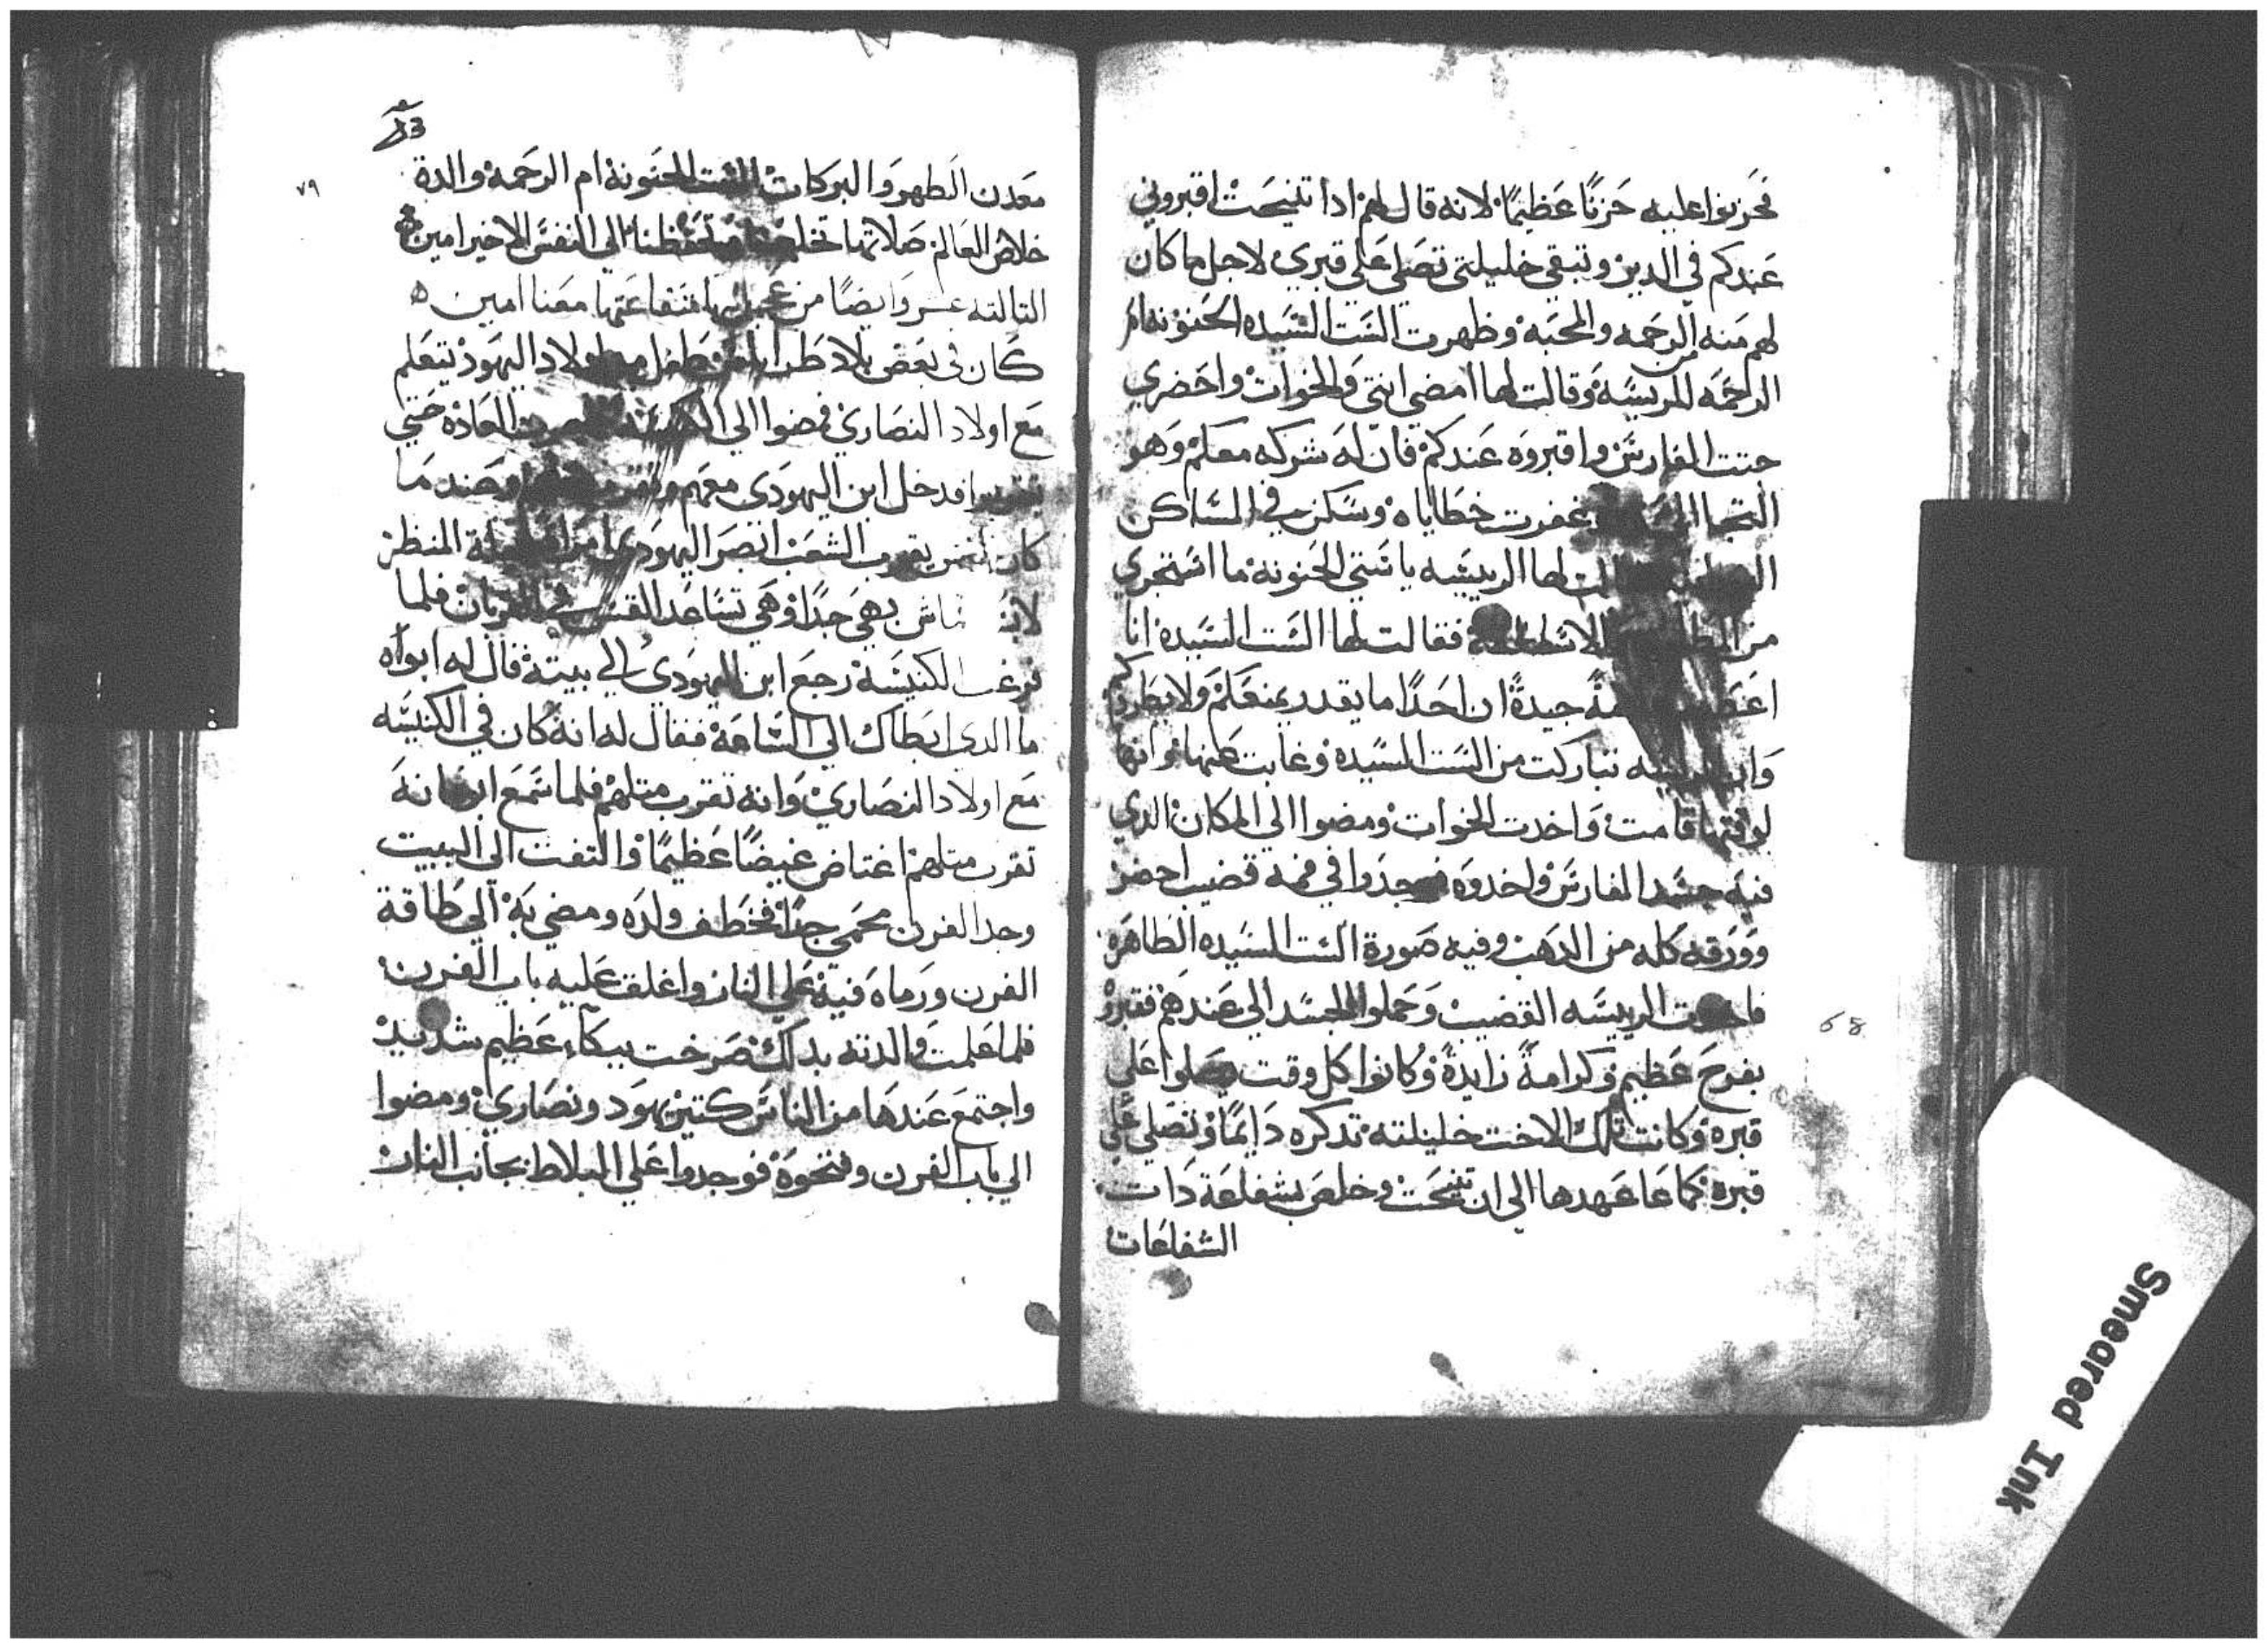 فحزنوا عليه حزنًا عظيمًا لانه قال لهم ادا تنيحت اقبروني
عندكم في الدير وتبقي خليلتي تصلي علي قبري لاجل ما كان
لهم منه من الرحمه والمحبه وظهرت الست السيده الحنونه ام
الرحمه للريسه وقالت لها امضي انتي والخوات واحضري
جتت الفارس واقبروه عندكم فان له شركه معكم وهو
التجا غفرت خطاياه وسكن في المساكن
لها الرييسه يا ستي الحنونة ما استجري
من فقالت لها الست السيدة انا
جيدةً ان احدًا ما يقدر يمنعكم ولا يطردكم
وان الرييسه تباركت من الست السيده وغابت عنها وانها
لوقتها قامت واخدت الخوات ومضوا الي المكان الدي
فيه جسد الفارس واخدوه فوجدوا في فمه قضيب اخضر
وورقه كله من الدهب وفيه صورة الست السيده الطاهره
الرييسه القضيب وحملوا الجسد الي عندهم فقبروه
بفرح عظيم وكرامةً زايدةً وكانوا كل وقت يصلوا علي
قبره وكانت تلك الاخت خليلته تدكره دايمًا وتصلي علي
قبره كما عاهدها الي ان تنيحت وخلص بشفاعة دات
الشفاعات
68
٧٩
معدن الطهر والبركات الست الحنونة ام الرحمه والدة
خلاص العالم صلاتها تخلصنا وتحفظنا الي النفس الاخير امين
التالته عشر وايضًا من شفاعتها معنا امين
كان في بعض بلاد طفل من اولاد اليهود يتعلم
مع اولاد النصاري فمضوا الي الكنيسه العاده حتي
فدخل ابن اليهودي معهم وعند ما
كان القس يقرب الشعب ابصر اليهودي المنظر
بهي جدًا وهي تساعد القس في القربان فلما
فرغت الكنيسة رجع ابن اليهودي الي بيته قال له ابواه
ما الدي ابطاك الي الساعة فقال له انه كان في الكنيسه
مع اولاد النصاري وانه تقرب متلهم فلما سمع انه
تقرب متلهم اغتاض غيضًا عظيمًا والتفت الي البيت
وجد الفرن محمي جدًا فخطف ولده ومضي به الي طاقة
الفرن ورماه فيه علي النار واغلق عليه باب الفرن
فلما علمت والدته بدالك صرخت ببكاء عظيم شديد
واجتمع عندها من الناس كتير يهود ونصاري ومضوا
الي باب الفرن وفتحوه فوجدوا علي البلاط بجانب النار
Smeared Ink